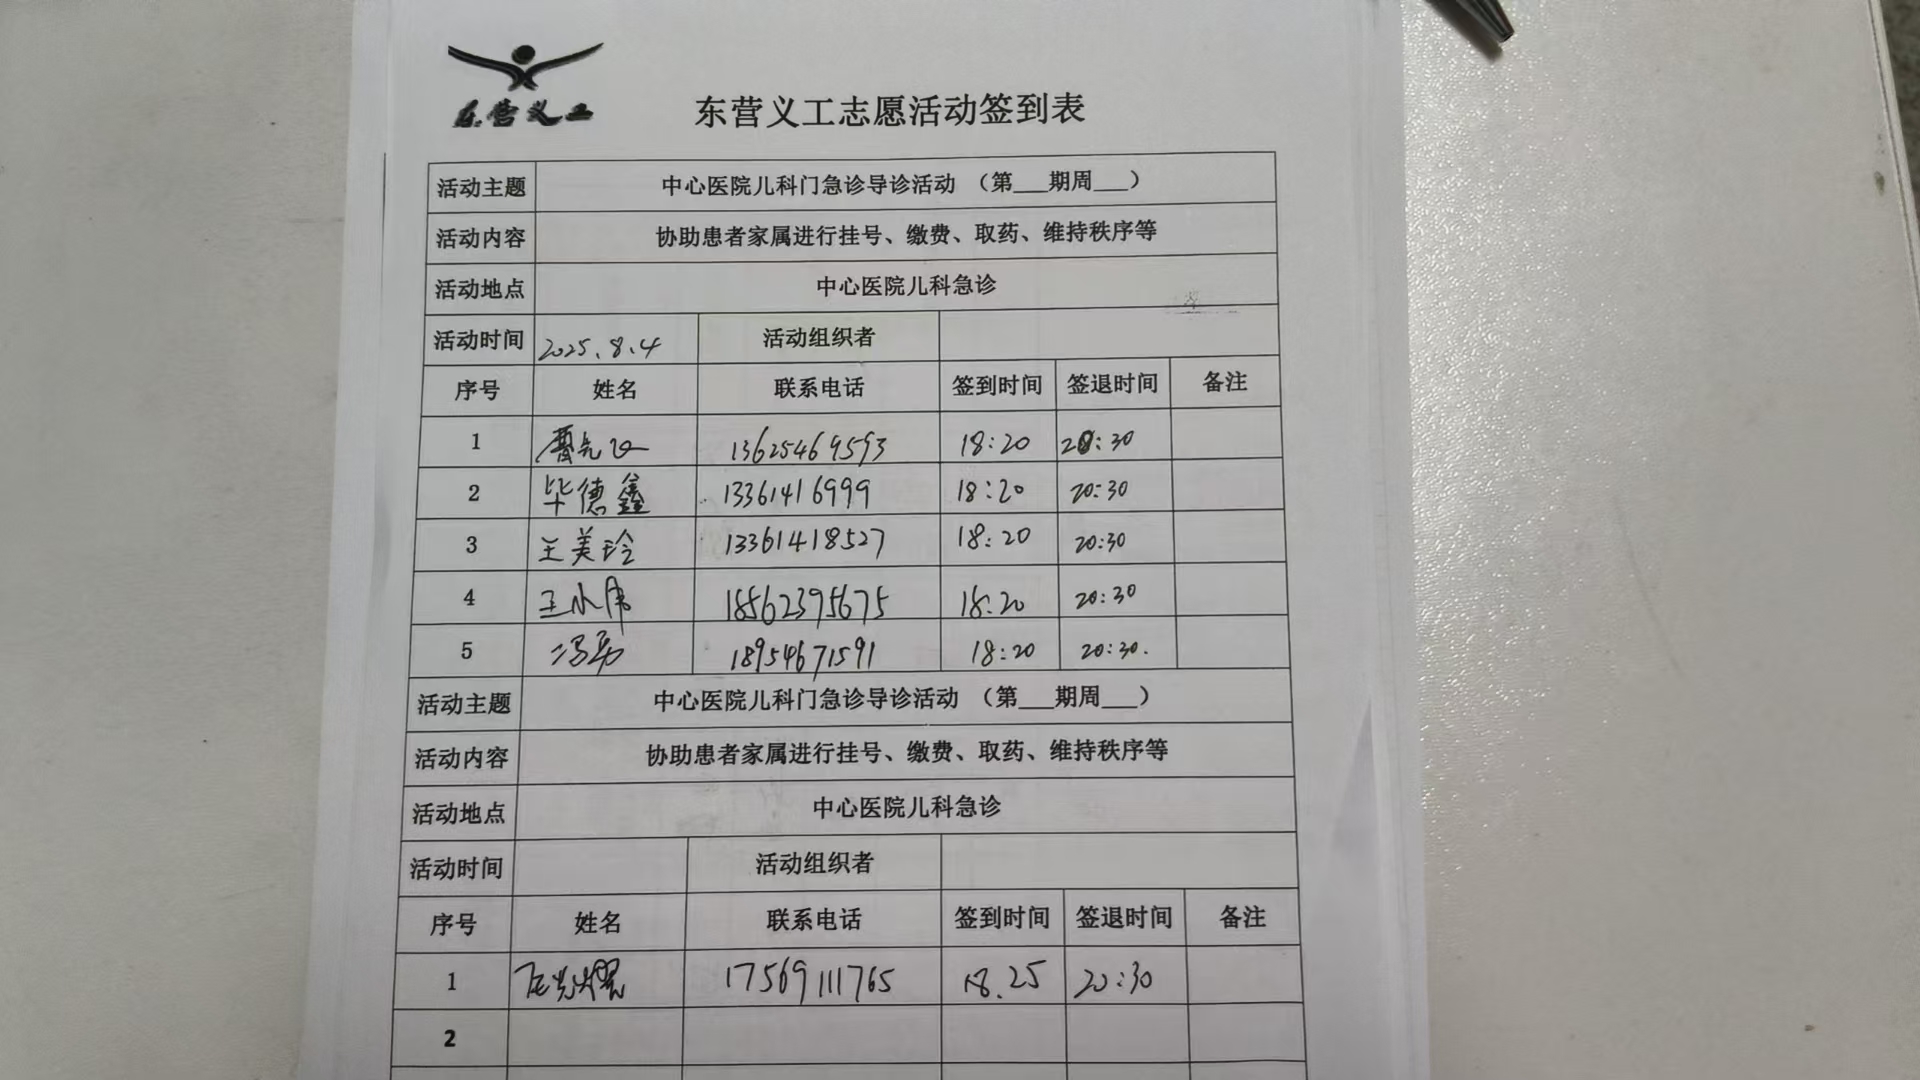 东营义工
东营义工志愿活动签到表
活动主题 中心医院儿科门急诊导诊活动 （第___期周___）
活动内容 协助患者家属进行挂号、缴费、取药、维持秩序等
活动地点 中心医院儿科急诊
活动时间 2025.8.4 活动组织者
序号 姓名 联系电话 签到时间 签退时间 备注
1 13625469593 18:20 20:30
2 毕德鑫 13361416999 18:20 20:30
3 王美玲 13361418527 18:20 20:30
4 王小伟 18562395675 18:20 20:30
5 18954671591 18:20 20:30.
活动主题 中心医院儿科门急诊导诊活动 （第___期周___）
活动内容 协助患者家属进行挂号、缴费、取药、维持秩序等
活动地点 中心医院儿科急诊
活动时间 活动组织者
序号 姓名 联系电话 签到时间 签退时间 备注
1 17569111765 18.25 20:30
2